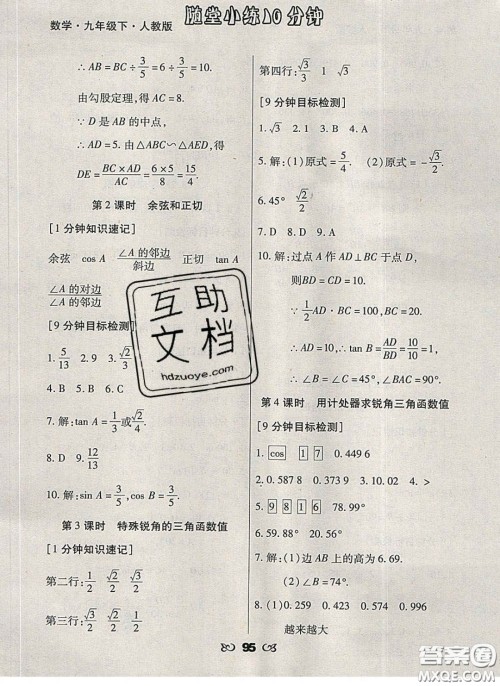 数学·九年级下·人教版
随堂小练10分钟
∴ AB = BC ÷ 3/5 = 6 ÷ 3/5 = 10.
由勾股定理,得 AC = 8.
∵ D 是 AB 的中点,
∴ AD = 5. 由 △ABC∽△AED,得
DE = (BC × AD)/AC = (6 × 5)/8 = 15/4.
第 2 课时 余弦和正切
[1 分钟知识速记]
余弦 cos A ∠A 的邻边/斜边 正切 tan A
∠A 的对边/∠A 的邻边
[9 分钟目标检测]
1. 5/13 2. 9 3. √2/3
4. B 5. B 6.
7. 解: tan A = 1/3 或 √2/4.
8. D 9. 12/13
10. 解: sin A = 3/5, cos B = 3/5.
第 3 课时 特殊锐角的三角函数值
[1 分钟知识速记]
第二行: 1/2 √2/2 √3/2
第三行: √3/2 √2/2 1/2
第四行: √3/3 1 √3
[9 分钟目标检测]
1. √3 2. 1 3. B 4. A
5. 解:(1)原式 = 5/4. (2)原式 = -√3/2.
6. 45° √2/2
7. D 8. D 9. A
10. 解:过点 A 作 AD⊥BC 于点 D,
则 BD = CD = 10.
∵ 1/2 AD·BC = 100, BC = 20,
∴ AD = 10, ∴ tan B = AD/BD = 10/10 = 1,
∴ ∠B = ∠C = 45°, ∠BAC = 90°.
第 4 课时 用计处器求锐角三角函数值
[9 分钟目标检测]
1. cos 1 7 0.449 6
2. 0.587 8 3. 0.340 2 4. >
5. 9 8 1 6 78.99°
6. 59.88° 2.90°
7. 解:(1)边 AB 上的高为 6.69.
(2)∠B ≈ 57°.
8. (1)0.259 0.423 0.574 0.946
越来越大
95
互助文档
hdzuoye.com
答案圈
MXQE.COM